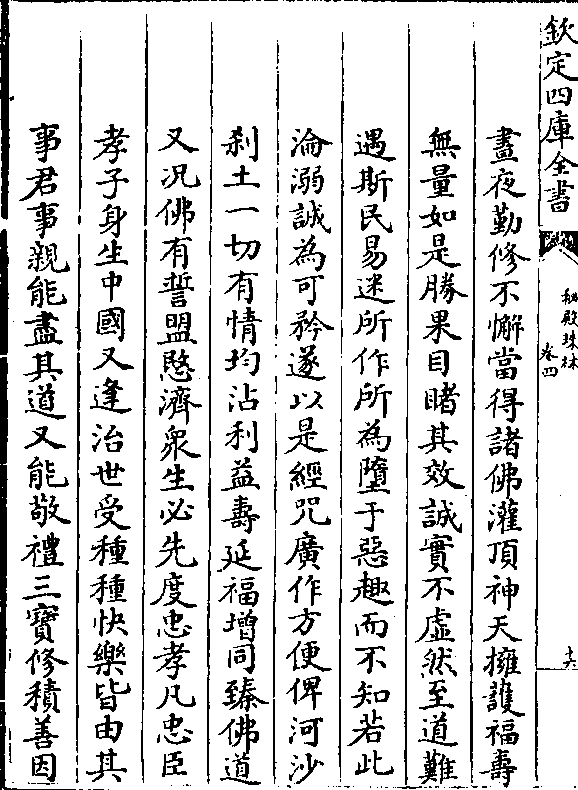 欽定四庫全書
秘殿珠林
卷四
十六
晝夜勤修不懈當得諸佛灌頂神天擁護福壽
無量如是勝果目睹其效誠實不虛然至道難
遇斯民易迷所作所為墮于惡趣而不知若此
淪溺誠為可矜遂以是經咒廣作方便俾河沙
剎土一切有情均沾利益壽延福增同臻佛道
又況佛有誓盟愍濟眾生必先度忠孝凡忠臣
孝子身生中國又逢治世受種種快樂皆由其
事君事親能盡其道又能敬禮三寶修積善因